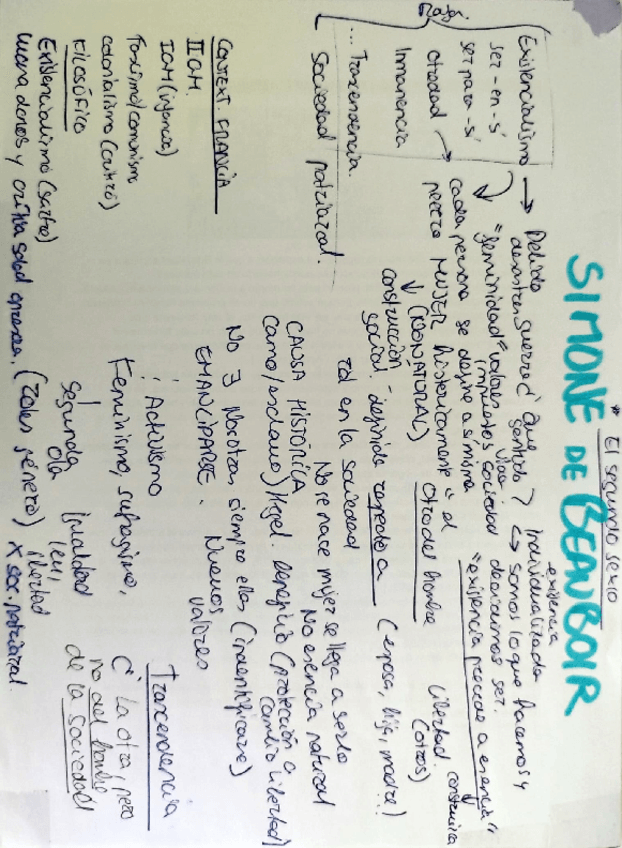 * El segundo sexo
SIMONE DE BEAUBOIR
Existencialismo → Debido desastres guerra ¿ que sentido vida? Individualizada existencia
ser-en-sí
ser para-sí
↳ Somos lo que hacemos y decidimos ser.
"feminidad" = valores impuestos sociedad
"existencia precede a esencia"
cada persona se define a si misma
Libertad construirla (otros)
otredad → pecera MUJER históricamente = el Otro del hombre
Inmanencia
↓ (NO NATURAL)
construcción social - definida respecto a (esposa, hija, madre!)
... Trascendencia
rol en la sociedad
Sociedad patriarcal.
No se nace mujer se llega a serlo
No esencia natural
CAUSA HISTÓRICA
Camo/esclavo) Hegel. Beneficio (protección a cambio libertad)
No ∃ Nosotras, siempre ellas (inidentificarse)
EMANCIPARSE.
Nuevos valores
CONTEXT FRANCIA
IIGM.
IGM (infancia)
Fascismo/comunismo
colonialismo (contra)
: Activismo
Feminismo, sufragismo,
Segunda ola
Igualdad ley, libertad
Trascendencia
C' La otra, pero
no del hombre
de la sociedad
FILOSÓFICO
Existencialismo (Sartre)
y crítica sdad opresora. (roles género) X soc. patriarcal.